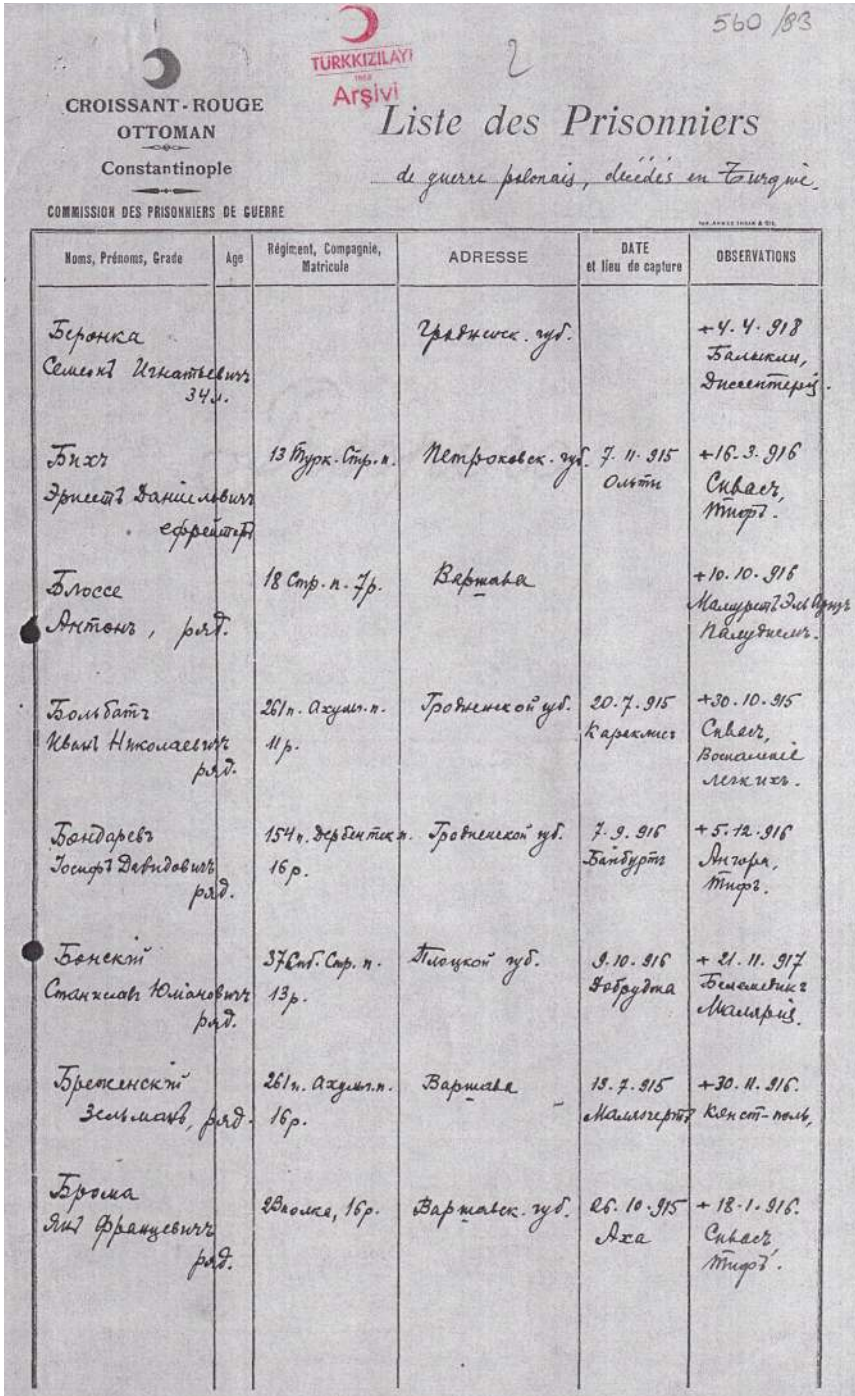 560/83
TÜRKKIZILAYI
1868
Arşivi
2
CROISSANT-ROUGE
OTTOMAN
Constantinople
COMMISSION DES PRISONNIERS DE GUERRE
Liste des Prisonniers
de guerre polonais, décédés en Turquie.
Noms, Prénoms, Grade
Age
Régiment, Compagnie,
Matricule
ADRESSE
DATE
et lieu de capture
OBSERVATIONS
Беронка
Семенъ Игнатьевичъ
34 л.
Гродненск. губ.
+4.4.918
Балыкли,
Бихъ
Эрнестъ Данiиловичъ
ефрейторъ
13 Турк. Стр. п.
Петроковск. губ.
7.11.915
Ольты
+16.3.916
Сивасъ,
тифъ.
Блоссе
Антонъ, ряд.
18 Стр. п. 7р.
Варшава
+10.10.916
Больбатъ
Иванъ Николаевичъ
ряд.
261 п. Ахульг. п.
11 р.
Гродненской губ.
20.7.915
+30.10.915
Сивасъ,
Воспаленiе
легкихъ.
Бондаревъ
Iосифъ Давидовичъ
ряд.
154 п. Дербентск п.
16 р.
Гродненской губ.
7.9.916
Байбуртъ
+5.12.916
Ангора,
тифъ.
Бонскiй
Станиславъ
ряд.
37 Стр. п.
13 р.
Плоцкой губ.
9.10.916
Добруджа
+ 21.11.917
Белемедикъ
Малярiя.
Зельманъ, ряд.
261 п. Ахульг. п.
16 р.
Варшава
19.7.915
+30.11.916.
Конст-поль,
Брома
Янъ Францевичъ
ряд.
16 р.
Варшавск. губ.
26.10.915
Аха
+ 18.1.916.
Сивасъ
тифъ.